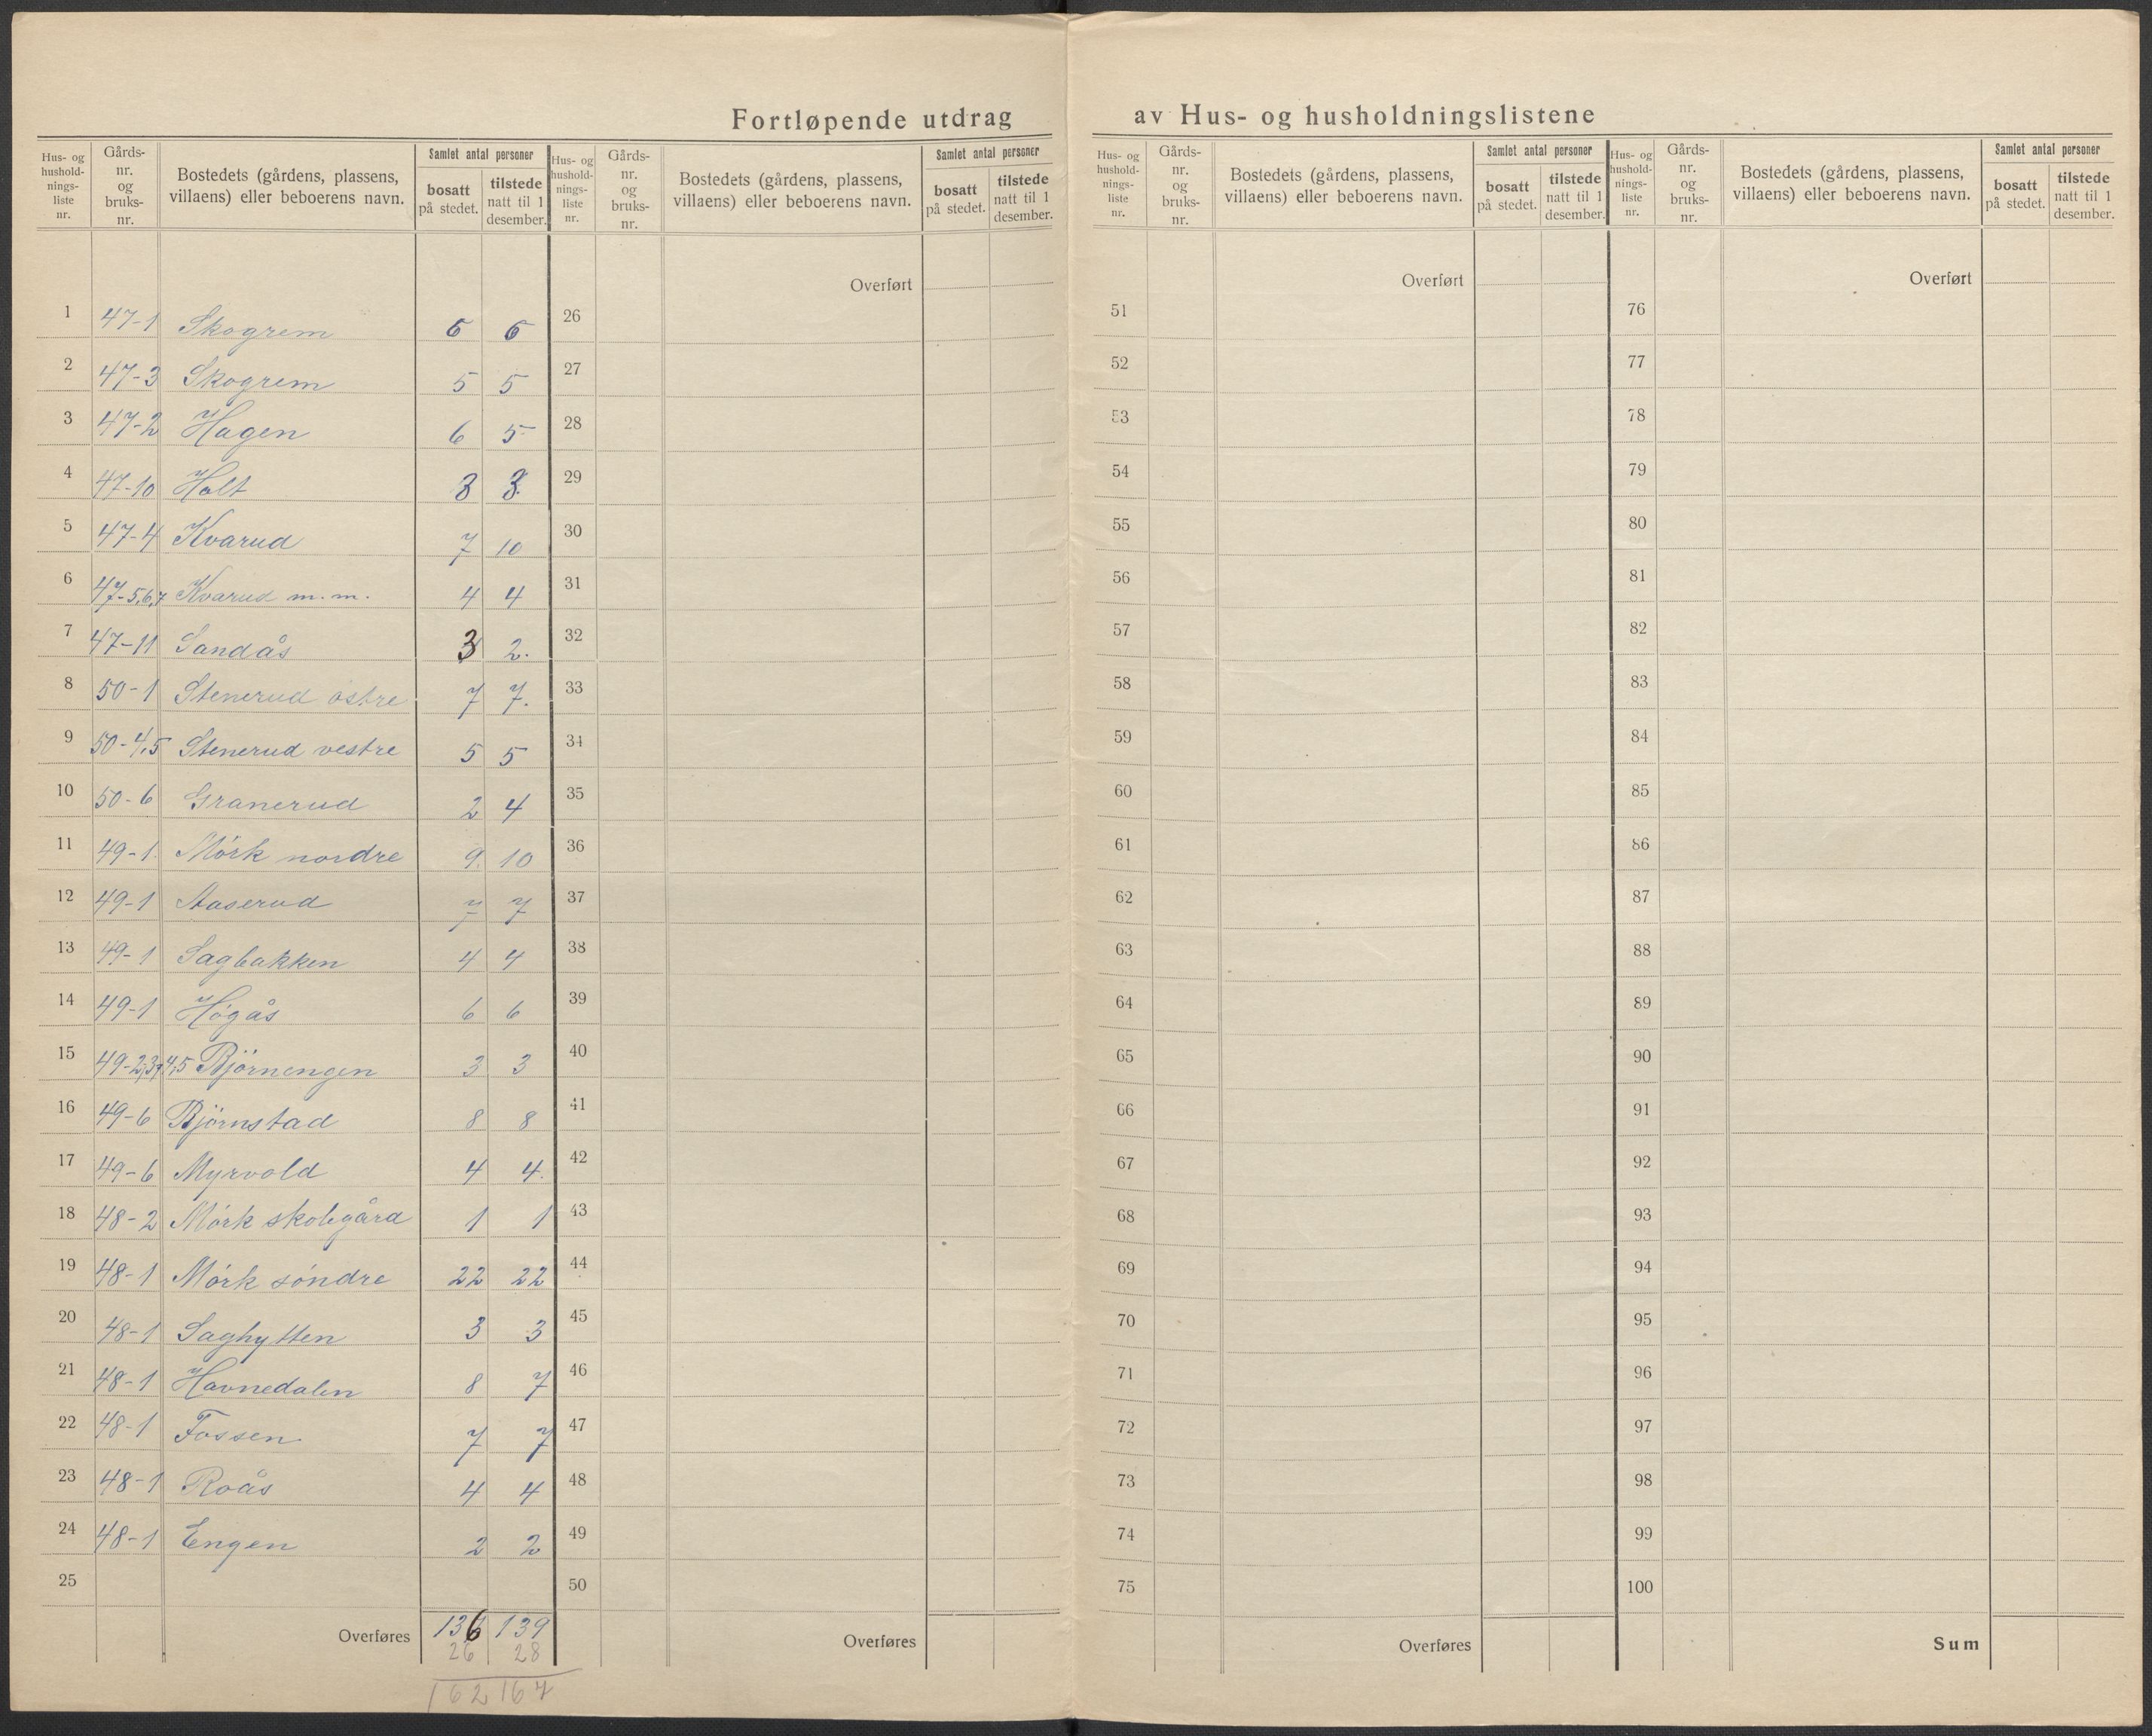 Fortløpende utdrag av Hus- og husholdningslistene
Hus- og hushold- nings- liste nr. | Gårds- nr. og bruks- nr. | Bostedets (gårdens, plassens, villaens) eller beboerens navn. | Samlet antal personer | bosatt på stedet. | tilstede natt til 1 desember.
Hus- og hushold- nings- liste nr. | Gårds- nr. og bruks- nr. | Bostedets (gårdens, plassens, villaens) eller beboerens navn. | Samlet antal personer | bosatt på stedet. | tilstede natt til 1 desember.
Hus- og hushold- nings- liste nr. | Gårds- nr. og bruks- nr. | Bostedets (gårdens, plassens, villaens) eller beboerens navn. | Samlet antal personer | bosatt på stedet. | tilstede natt til 1 desember.
Hus- og hushold- nings- liste nr. | Gårds- nr. og bruks- nr. | Bostedets (gårdens, plassens, villaens) eller beboerens navn. | Samlet antal personer | bosatt på stedet. | tilstede natt til 1 desember.
Overført Overført Overført
1 47-1 Skogrem 6 6 26 51 76
2 47-3 Skogrem 5 5 27 52 77
3 47-2 Hagen 6 5 28 53 78
4 47-10 Holt 3 3. 29 54 79
5 47-4 Kvarud 7 10 30 55 80
6 47-5,6,7 Kvarud m.m. 4 4 31 56 81
7 47-11 Sandås 3 2. 32 57 82
8 50-1 Stenerud østre 7 7. 33 58 83
9 50-4,5 Stenerud vestre 5 5 34 59 84
10 50-6 Granerud 2 4 35 60 85
11 49-1. Mörk nordre 9. 10 36 61 86
12 49-1 Aaserud 7 7 37 62 87
13 49-1 Sagbakken 4 4 38 63 88
14 49-1 Högås 6 6 39 64 89
15 49-2,3,4,5 Björnengen 3 3 40 65 90
16 49-6 Björnstad 8 8 41 66 91
17 49-6 Myrvold 4 4. 42 67 92
18 48-2 Mörk skolegård 1 1 43 68 93
19 48-1 Mörk söndre 22 22 44 69 94
20 48-1 Saghytten 3 3 45 70 95
21 48-1 Havnedalen 8 7 46 71 96
22 48-1 Fossen 7 7 47 72 97
23 48-1 Roås 4 4 48 73 98
24 48-1 Engen 2 2 49 74 99
25 50 75 100
Overføres 136 139 Overføres Overføres Sum
26 28
162 167